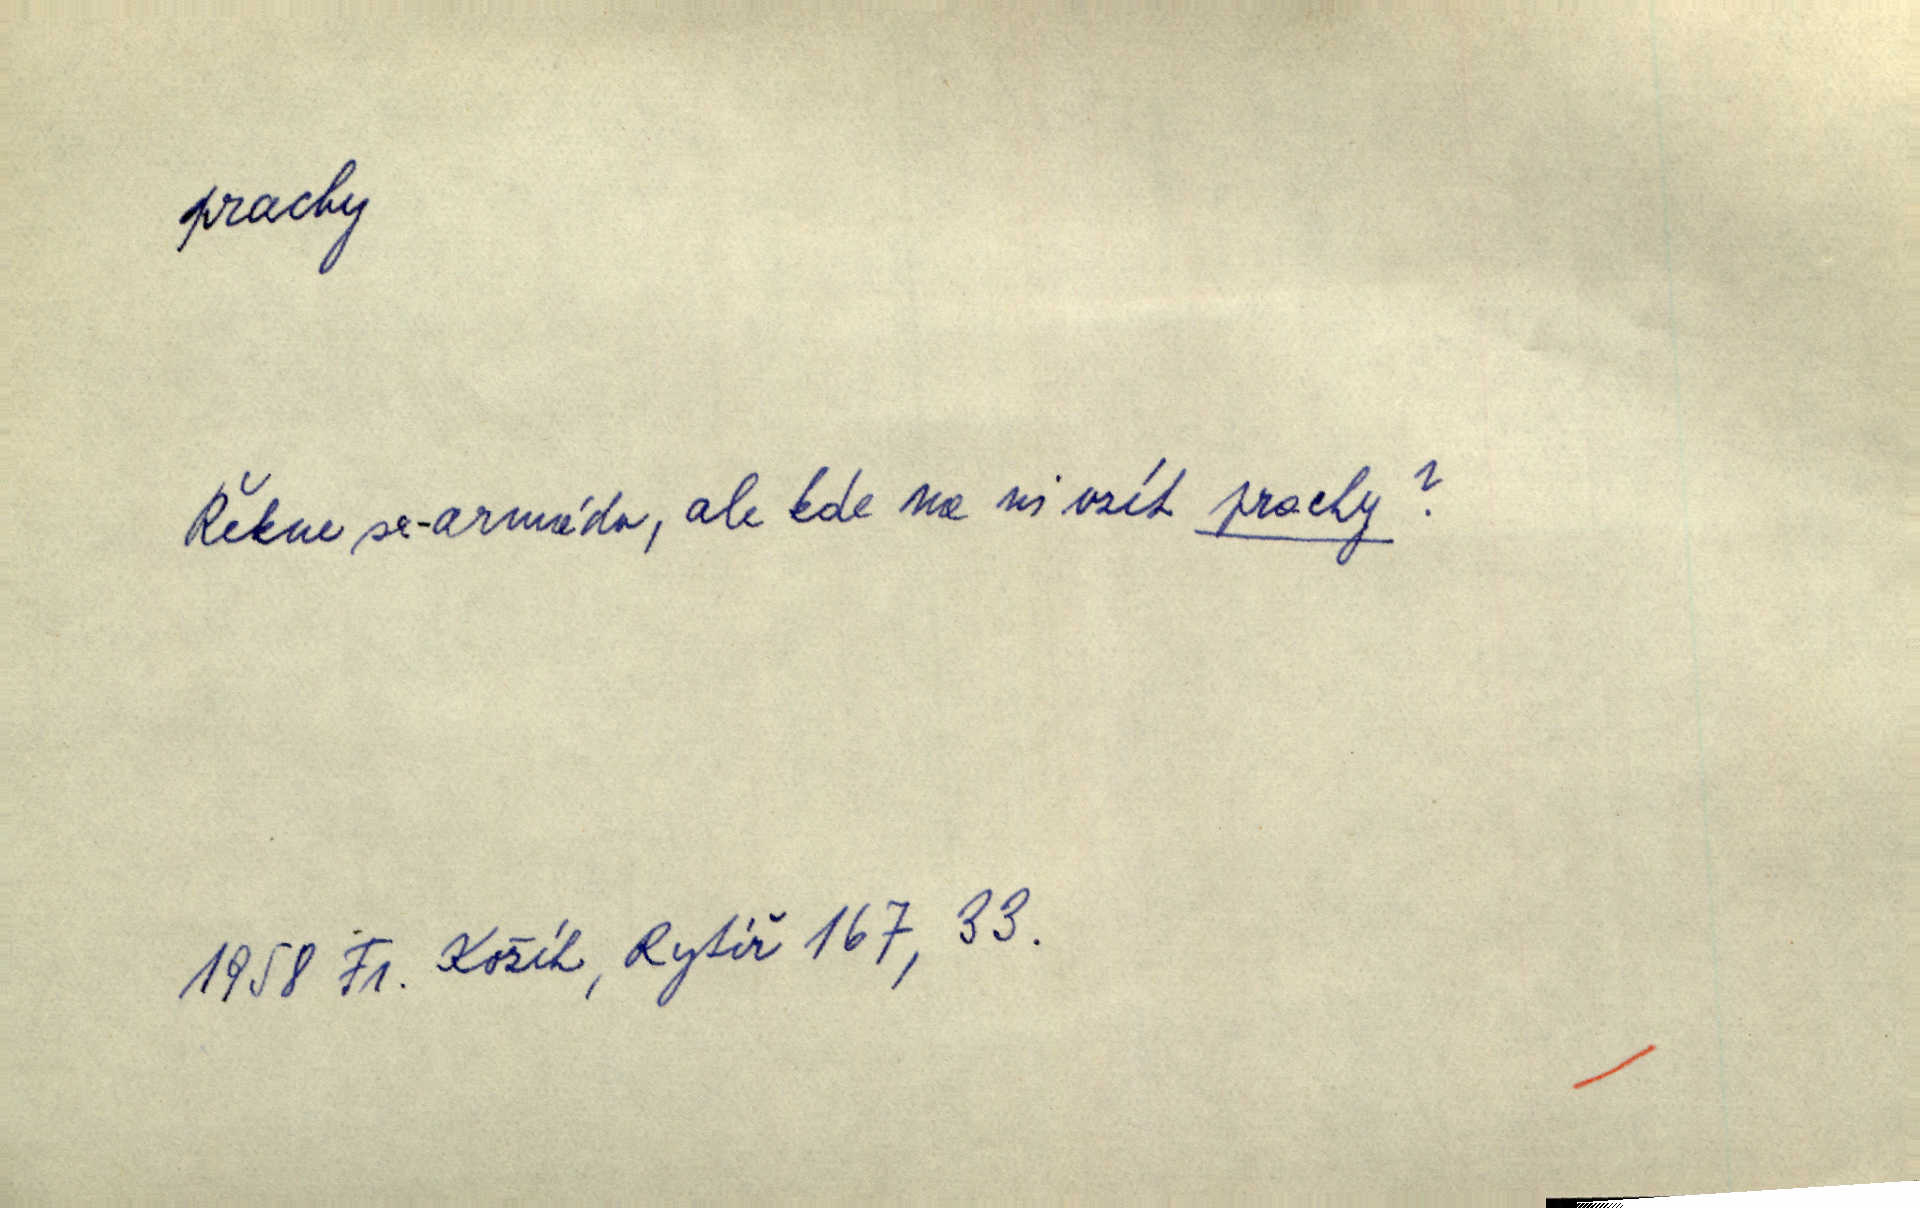 prachy
Řekne se-armáda, ale kde na ni vzít prachy?
1958 Fr. Kožík, Rytíř 167, 33.